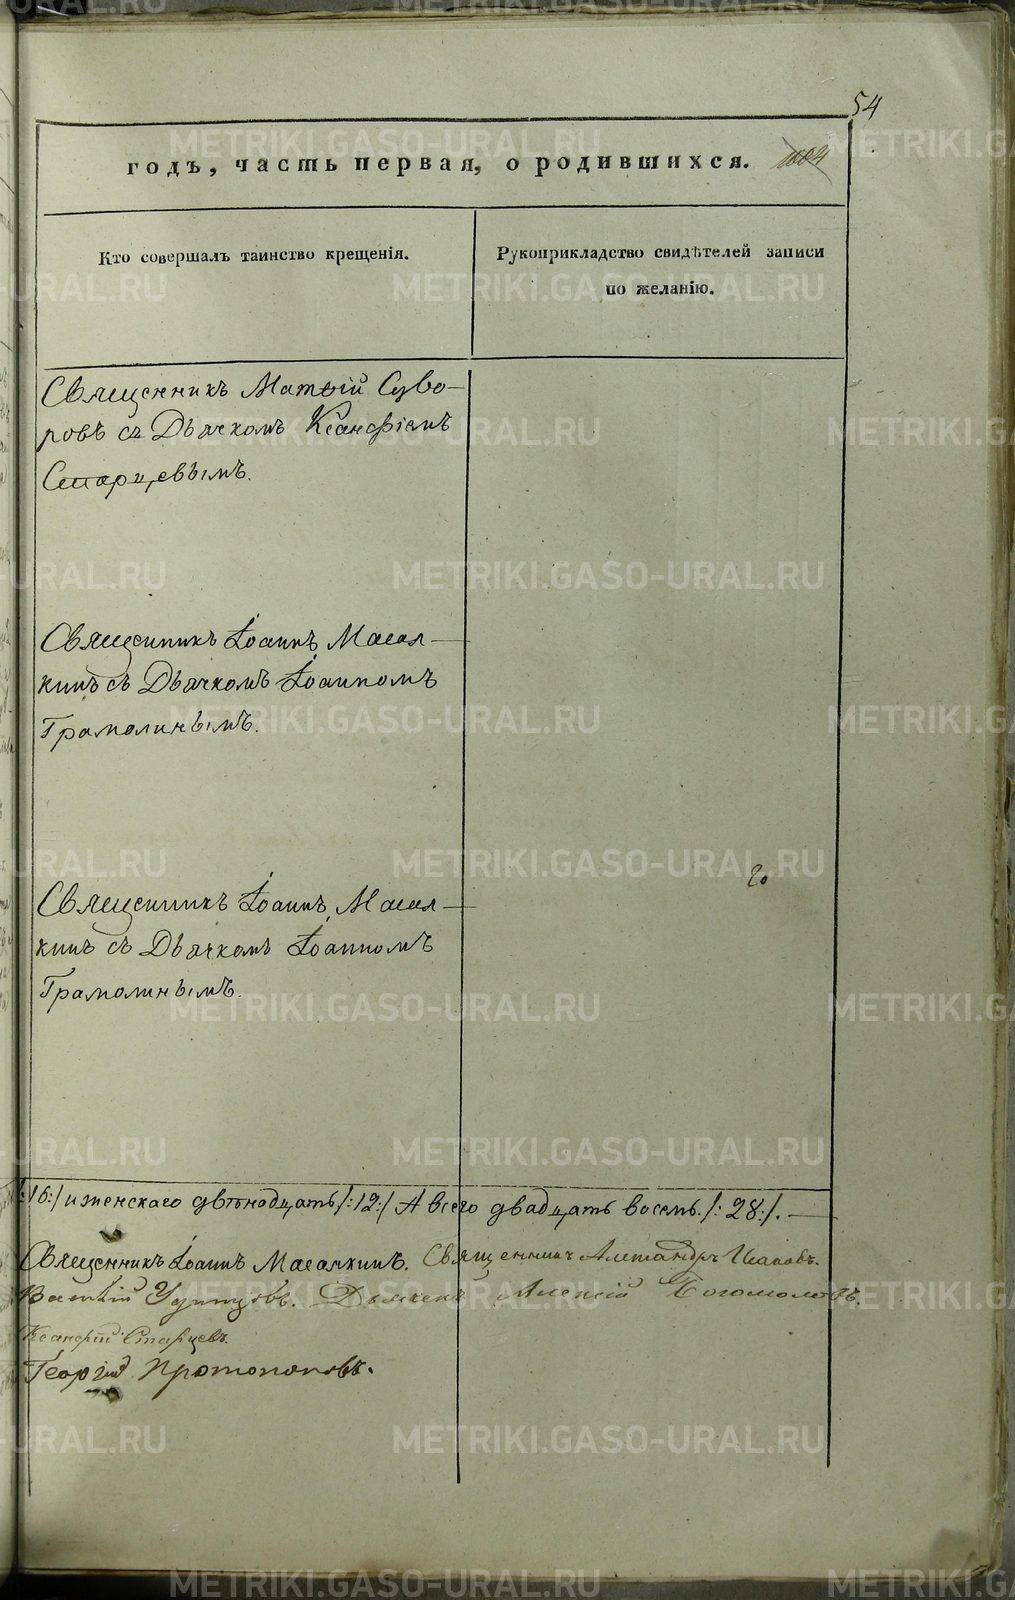 54
годъ, часть первая, о родившихся.
Кто совершалъ таинство крещенія.
Рукоприкладство свидѣтелей записи
по желанію.
Священникъ Матѳій Суво-
ровъ съ Дьячкомъ Ксанфіемъ
Старцевымъ.
Священникъ Іоаннъ Масал-
кинъ съ Дьячкомъ Іоанномъ
Грамолинымъ.
Священникъ Іоаннъ Масал-
кинъ съ Дьячкомъ Іоанномъ
Грамолинымъ.
:16:/ и женскаго двѣнадцать /:12:/ А всего двадцать восемь /:28:/.
Священникъ Іоаннъ Масалкинъ. Священникъ Александръ
Дьяченъ Алексій Богомоловъ.
Ксанфій Старцевъ.
Георгій Протопоповъ.
METRIKI.GASO-URAL.RU